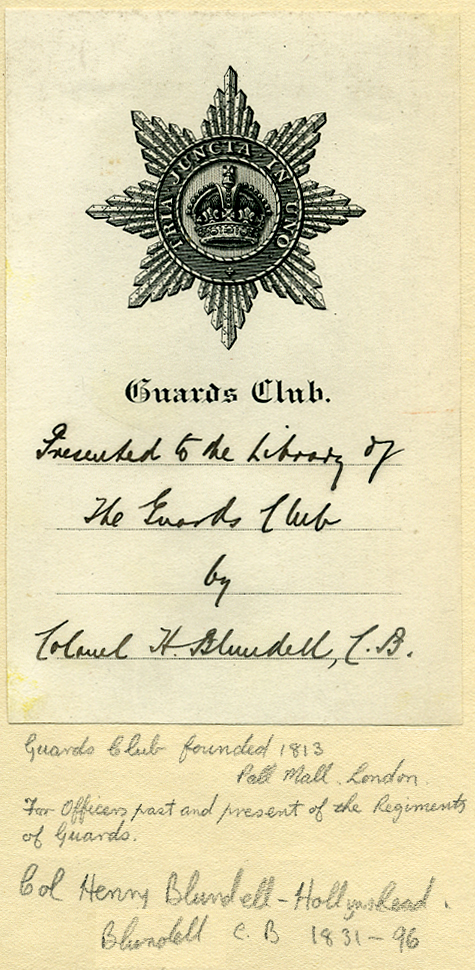 TRIA JUNCTA IN UNO
Guards Club.
Presented to the Library of
The Guards Club
by
Colonel H. Blundell, C.B.
Guards Club founded 1813
Pall Mall. London.
For Officers past and present of the Regiments
of Guards.
Col Henry Blundell-Hollinshead.
Blundell C.B 1831-96